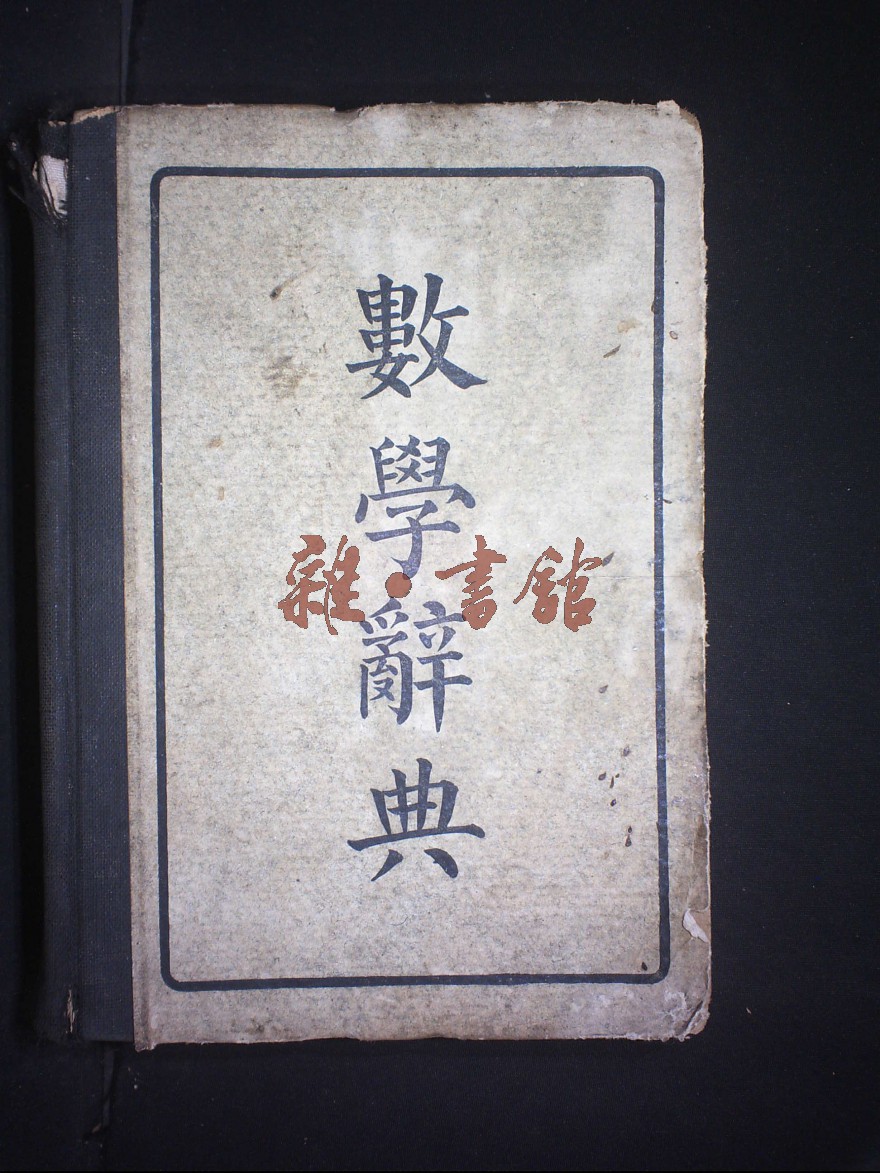 數學辭典
雜·書館